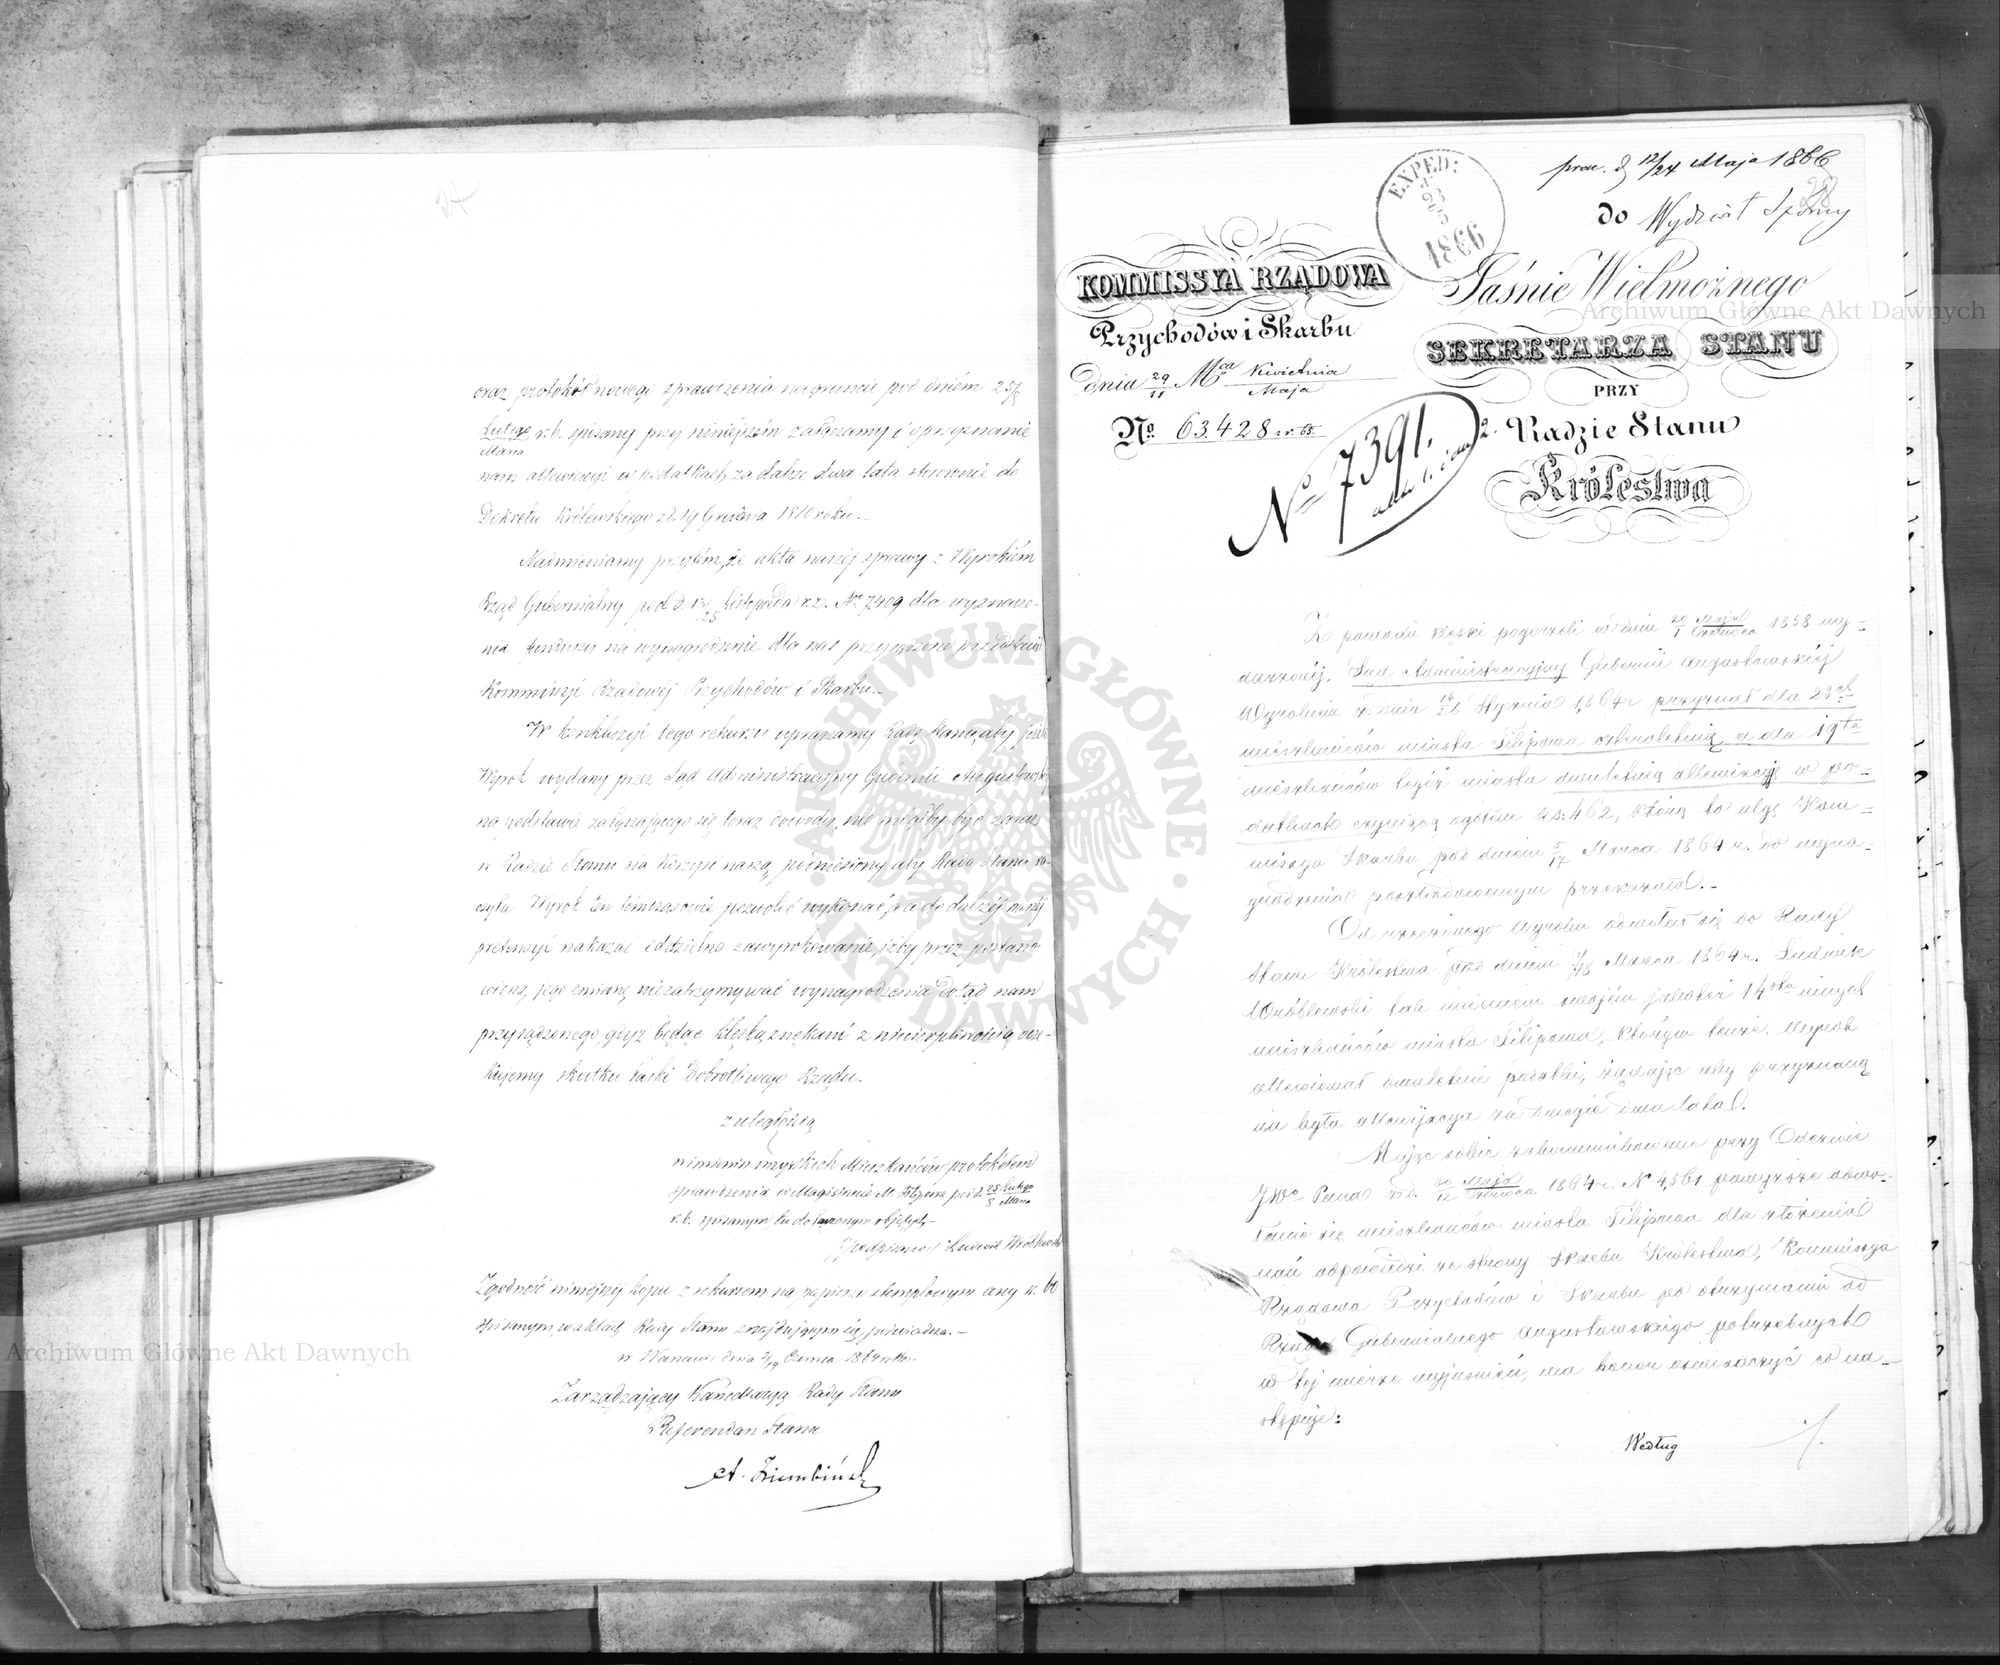 27
oraz protokół nowego sprawdzenia na gruncie pod dniem 25/8
Lutego/Marca r. b. spisany przy niniejszem załączamy i o przyznanie
nam allewiacyi w podatkach za dalsze dwa lata stosownie do
Dekretu Królewskiego z d. 19 Grudnia 1810 roku.–
Nadmieniamy przytém, że akta naszéj sprawy z Wyrokiém
Rząd Gubernialny pod d. 13/25 Listopada r. z. No 7409 dla wyznacze-
nia funduszu na wynagrodzenie dla nas przysądzone przedstawił
Kommissyi Rządowéj Przychodów i Skarbu.–
W konkluzyi tego rekursu upraszamy Radę Stanu, aby jeżeli
Wyrok wydany przez Sąd Administracyjny Gubernii Augustowskiéj
na podstawie załączającego się teraz dowodu, nie mógłby być zaraz
w Radzie Stanu na korzyść naszą podniesiony, aby Rada Stanu ra-
czyła Wyrok ten tymczasowie pozwolić wykonać, a co do dalszéj naszéj
pretensyi nakazać oddzielne zawyrokowanie, iżby przez postano
wioną jego zmianę niezatrzymywać wynagrodzenia dotąd nam
przysądzonego, gdyż będąc klęską znękani z niecierpliwością ocze-
kujemy skutku łaski Dobrotliwego Rządu.
z uległością
w imieniu wszystkich Mieszkańców protokółem
sprawdzenia w Magistracie M. Filipowa pod d. 25 Lutego/8 Marca
r. b. spisanym tu dołączonym objętych–
/podpisano/ Ludwik Wróblewski
Zgodność niniejszéj kopii z rekursem na papierze stemplowym ceny k. 60
spisanym, w aktach Rady Stanu znajdującym się, poświadcza.–
w Warszawie dnia 2/14 Czerwca 1864 roku.
Zarządzający Kancellaryą Rady Stanu
Referendarz Stanu
A. Ziembiński
prez. d 12/24 Maja 1866
28
EXPED:
1866
do Wydział Sporny
KOMMISSYA RZĄDOWA
Przychodów i Skarbu
dnia 29/11 Mca Kwietnia/Maja
No 63.428 z r. 65.
No 7391.
Jaśnie Wielmożnego
SEKRETARZA STANU
PRZY
Radzie Stanu
Królestwa
Z powodu klęski pogorzeli w dniu 20 Maja/1 Czerwca 1858 wy-
darzonéj, Sąd Administracyjny Gubernii Augustowskiéj
Wyrokiem z dnia 14/26 Stycznia 1864 r. przyznał dla 23ch
mieszkańców miasta Filipowa czteroletnią, a dla 19tu
mieszkańców tegóż miasta dwuletnią allewiacyję w po-
datkach czyniącą ogółem rs: 462, którą to ulgę Kom-
missya Skarbu pod dniem 5/17 Marca 1864 r. do wyna-
grodzenia poszkodowanym przekazała.–
Od rzeczonego Wyroku odwołał się do Rady
Stanu Królestwa pod dniem 7/18 Marca 1864 r. Ludwik
Wróblewski tak imieniem swojém jakoteż 14stu innych
mieszkańców miasta Filipowa, którym tenże Wyrok
allewiował dwuletnie podatki, żądając aby przyznaną
im była allewijacya za drugie dwa lata.
Mając sobie zakommunikowane przy Odezwie
JWo Pana z d. 20 Maja/12 Czerwca 1864 r. N 4,561 powyższe odwo-
łanie się mieszkańców miasta Filipowa dla złożenia
nań odpowiedzi ze strony Skarbu Królestwa, Kommissya
Rządowa Przychodów i Skarbu po otrzymaniu od
Rządu Gubernialnego Augustowskiego potrzebnych
w téj mierze wyjaśnień, ma honor oświadczyć co na-
stępuje:
Według
ARCHIWUM GŁÓWNE AKT DAWNYCH
Archiwum Główne Akt Dawnych
Archiwum Główne Akt Dawnych